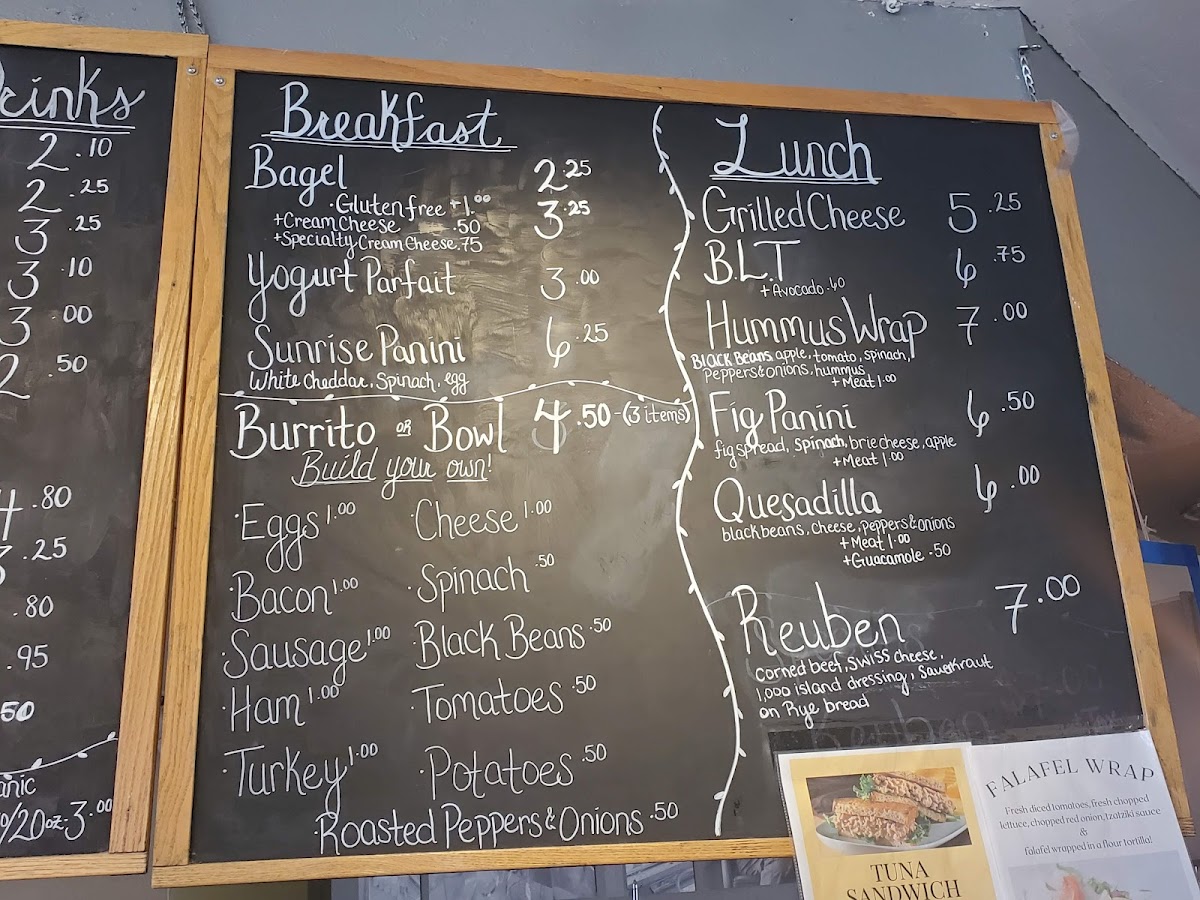 rinks
2.10
2.25
3.25
3.10
3.00
2.50
.80
.25
.80
.95
50
anic
/20oz-3.00
Breakfast
Bagel 2.25
·Gluten free +1.00 3.25
+Cream Cheese .50
+Specialty Cream Cheese .75
Yogurt Parfait 3.00
Sunrise Panini 6.25
White Cheddar, Spinach, egg
Burrito or Bowl 4.50-(3 items)
Build your own!
·Eggs 1.00 ·Cheese 1.00
·Bacon 1.00 ·Spinach .50
·Sausage 1.00 ·Black Beans .50
·Ham 1.00 ·Tomatoes .50
·Turkey 1.00 ·Potatoes .50
·Roasted Peppers & Onions .50
Lunch
Grilled Cheese 5.25
B.L.T 6.75
+ Avocado .40
Hummus Wrap 7.00
Black Beans, apple, tomato, spinach,
Peppers & onions, hummus
+ Meat 1.00
Fig Panini 6.50
fig spread, spinach, brie cheese, apple
+ Meat 1.00
Quesadilla 6.00
black beans, cheese, peppers & onions
+ Meat 1.00
+Guacamole .50
Reuben 7.00
corned beef, swiss cheese,
1,000 island dressing, sauerkraut
on Rye bread
TUNA
SANDWICH
FALAFEL WRAP
Fresh diced tomatoes, fresh chopped
lettuce, chopped red onion, tzatziki sauce
&
falafel wrapped in a flour tortilla!